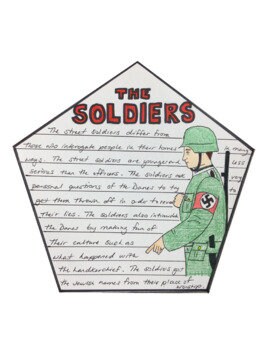 THE
SOLDIERS
The street soldiers differ from
those who interrogate people in their homes in many
ways. The street soldiers are younger and less
serious than the officers. The soldiers ask very
personal questions of the Danes to try
get them thrown off in order to
their lies. The soldiers also
the Danes by making fun of
their culture such as
what happened with
the handkerchief. The soldiers got
the Jewish names from their place of
worship.